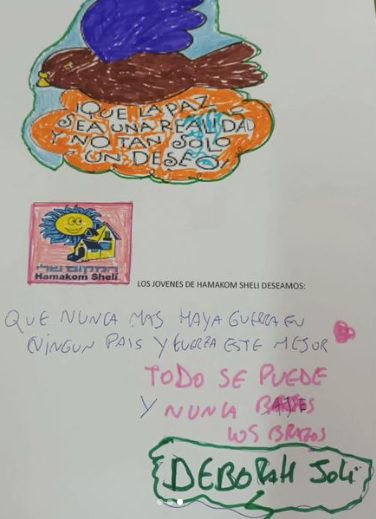 ¡QUE LA PAZ
SEA UNA REALIDAD
Y NO TAN SOLO
UN DESEO
המקום שלי
Hamakom Sheli
LOS JOVENES DE HAMAKOM SHELI DESEAMOS:
QUE NUNCA MAS HAYA GUERRA EN
NINGUN PAIS Y ESTE MEJOR
TODO SE PUEDE
Y NUNCA BAJES
LOS BRAZOS
DEBORAH